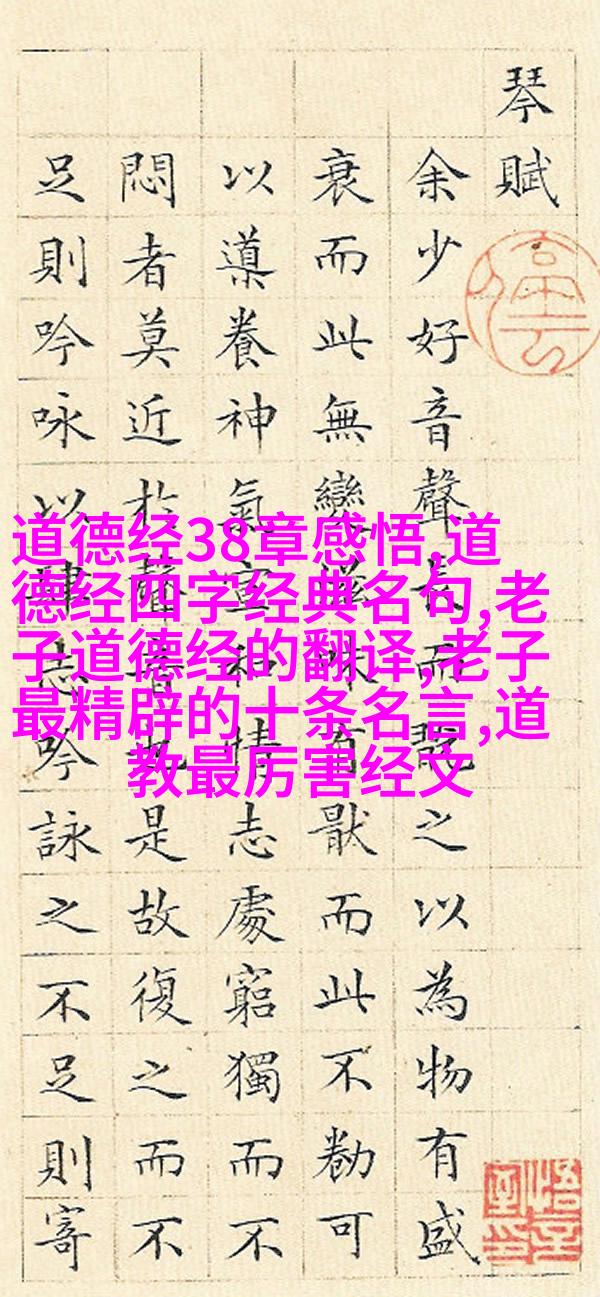 琴賦
余少好音聲長而翫之以為物有盛
衰而此無變滋味有猒而此不勌可
以導養神氣宣和情志處窮獨而不
悶者莫近於聲音也是故復之而不
足則吟咏以肆志吟詠之不足則寄
道德经38章感悟,道
德经四字经典名句,老
子道德经的翻译,老子
最精辟的十条名言,道
教最厉害经文